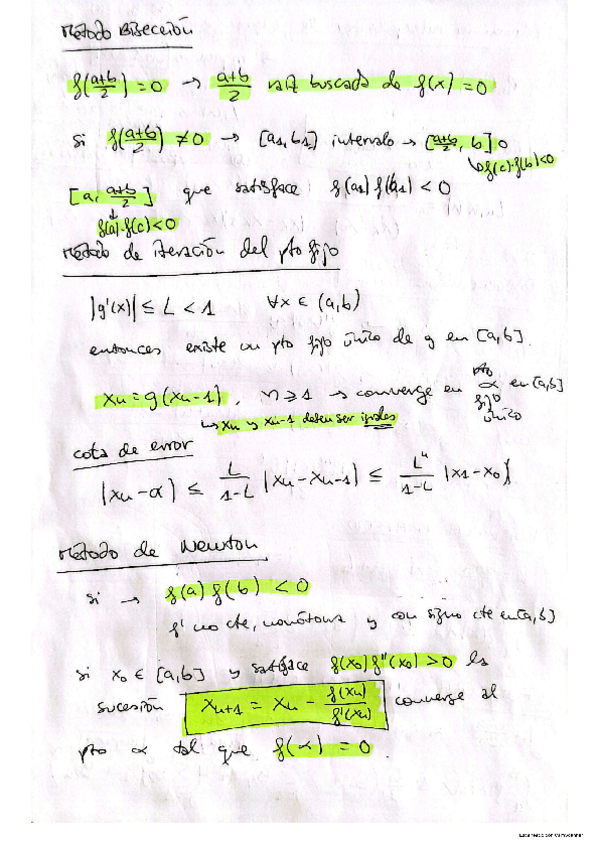 Método Bisección
f(a+b/2) = 0 → a+b/2 raíz buscada de f(x) = 0
si f(a+b/2) ≠ 0 → [a1, b1] intervalo → [a+b/2, b] o
↳ f(c)·f(b)<0
[a, a+b/2] que satisface f(a1) f(b1) < 0
↓
f(a)·f(c) < 0
Método de iteración del pto fijo
|g'(x)| ≤ L < 1 ∀x ∈ (a,b)
entonces existe un pto fijo único de g en [a,b].
xn = g(xn-1), n ≥ 1 → converge en pto fijo único α en [a,b]
↳ xn y xn-1 deben ser iguales
cota de error
|xn - α| ≤ L/1-L |xn - xn-1| ≤ L^n/1-L |x1 - x0|
Método de Newton
si → f(a) f(b) < 0
f' no cte, monótona y con signo cte en [a,b]
si x0 ∈ [a,b] y satisface f(x0) f''(x0) > 0 la
sucesión xn+1 = xn - f(xn)/f'(xn) converge al
pto α tal que f(α) = 0.